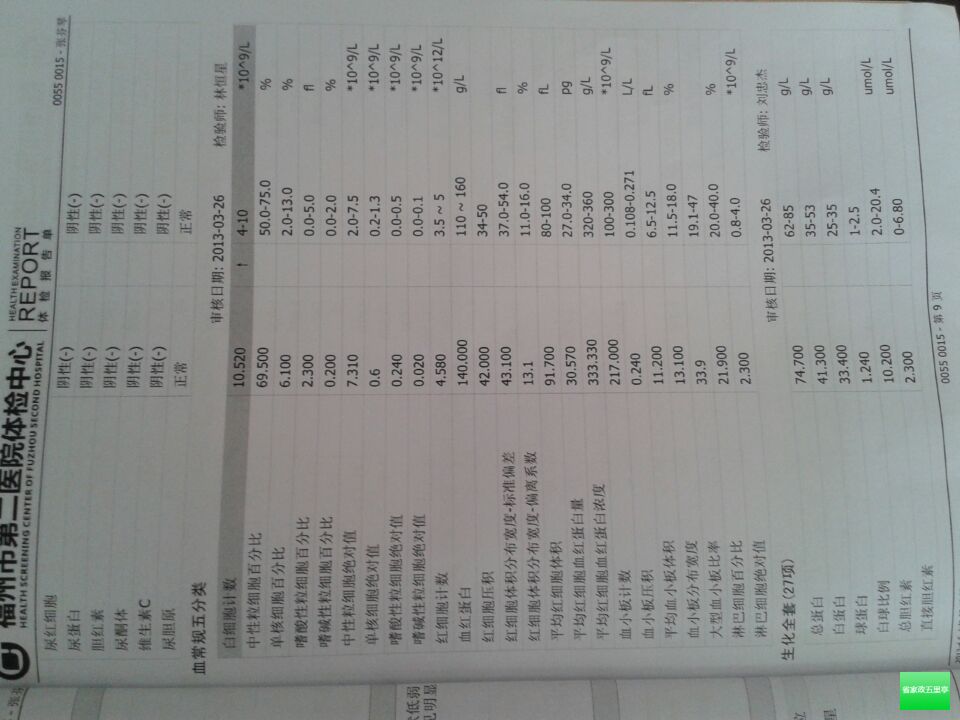 福州市第二医院体检中心
HEALTH SCREENING CENTER OF FUZHOU SECOND HOSPITAL
HEALTH EXAMINATION
REPORT
体 检 报 告 单
0055 0015 - 张芬琴
尿红细胞 阴性(-) 阴性(-)
尿蛋白 阴性(-) 阴性(-)
胆红素 阴性(-) 阴性(-)
尿酮体 阴性(-) 阴性(-)
维生素C 阴性(-) 阴性(-)
尿胆原 正常 正常
血常规五分类 审核日期: 2013-03-26 检验师: 林恒星
白细胞计数 10.520 ↑ 4-10 *10^9/L
中性粒细胞百分比 69.500 50.0-75.0 %
单核细胞百分比 6.100 2.0-13.0 %
嗜酸性粒细胞百分比 2.300 0.0-5.0 fl
嗜碱性粒细胞百分比 0.200 0.0-2.0 %
中性粒细胞绝对值 7.310 2.0-7.5 *10^9/L
单核细胞绝对值 0.6 0.2-1.3 *10^9/L
嗜酸性粒细胞绝对值 0.240 0.0-0.5 *10^9/L
嗜碱性粒细胞绝对值 0.020 0.0-0.1 *10^9/L
红细胞计数 4.580 3.5 ~ 5 *10^12/L
血红蛋白 140.000 110 ~ 160 g/L
红细胞压积 42.000 34-50
红细胞体积分布宽度-标准偏差 43.100 37.0-54.0 fl
红细胞体积分布宽度-偏离系数 13.1 11.0-16.0 %
平均红细胞体积 91.700 80-100 fL
平均红细胞血红蛋白量 30.570 27.0-34.0 pg
平均红细胞血红蛋白浓度 333.330 320-360 g/L
血小板计数 217.000 100-300 *10^9/L
血小板压积 0.240 0.108-0.271 L/L
平均血小板体积 11.200 6.5-12.5 fL
血小板分布宽度 13.100 11.5-18.0 %
大型血小板比率 33.9 19.1-47
淋巴细胞百分比 21.900 20.0-40.0 %
淋巴细胞绝对值 2.300 0.8-4.0 *10^9/L
生化全套(27项) 审核日期: 2013-03-26 检验师: 刘忠杰
总蛋白 74.700 62-85 g/L
白蛋白 41.300 35-53 g/L
球蛋白 33.400 25-35 g/L
白球比例 1.240 1-2.5
总胆红素 10.200 2.0-20.4 umol/L
直接胆红素 2.300 0-6.80 umol/L
0055 0015 - 第 9 页
省家政五里亭